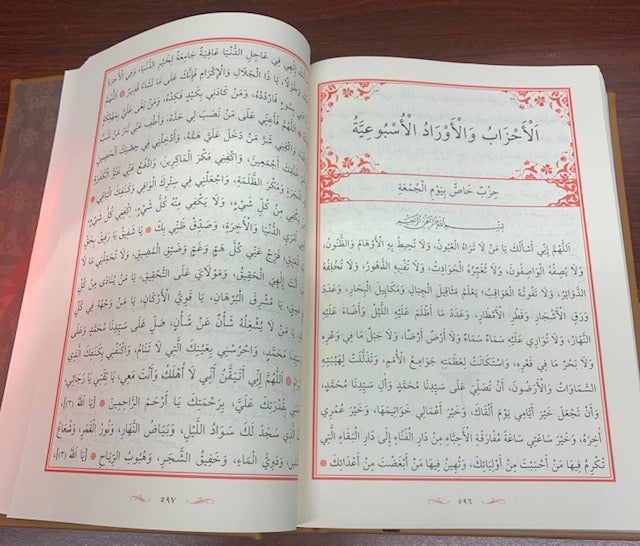 اَلْأَحْزَابُ وَالْأَوْرَادُ الْأُسْبُوعِيَّةُ
حِزْبٌ خَاصٌّ بِيَوْمِ الْجُمُعَةِ
بِسْمِ اللهِ الرَّحْمٰنِ الرَّحِيمِ
اَللّٰهُمَّ إِنِّي أَسْأَلُكَ يَا مَنْ لَا تَرَاهُ الْعُيُونُ، وَلَا تُحِيطُ بِهِ الْأَوْهَامُ وَالظُّنُونُ،
وَلَا يَصِفُهُ الْوَاصِفُونَ، وَلَا تُغَيِّرُهُ الْحَوَادِثُ، وَلَا تُفْنِيهِ الدُّهُورُ، وَلَا تُخْلِفُهُ
الدَّوَائِرُ، وَلَا تَفُوتُهُ الْعَوَاقِبُ؛ يَعْلَمُ مَثَاقِيلَ الْجِبَالِ وَمَكَايِيلَ الْبِحَارِ، وَعَدَدَ
وَرَقِ الْأَشْجَارِ وَقَطْرِ الْأَمْطَارِ، وَعَدَدَ مَا أَظْلَمَ عَلَيْهِ اللَّيْلُ وَأَضَاءَ عَلَيْهِ
النَّهَارُ، وَلَا تُوَارِي عَلَيْهِ سَمَاءٌ سَمَاءً وَلَا أَرْضٌ أَرْضًا، وَلَا جَبَلٌ مَا فِي وَعْرِهِ
وَلَا بَحْرٌ مَا فِي قَعْرِهِ، وَاسْتَكَانَتْ لِعَظَمَتِهِ جَوَامِعُ الْأُمَمِ، وَتَذَلَّلَتْ لِهَيْبَتِهِ
السَّمَاوَاتُ وَالْأَرَضُونَ، أَنْ تُصَلِّيَ عَلَى سَيِّدِنَا مُحَمَّدٍ وَآلِ سَيِّدِنَا مُحَمَّدٍ،
وَأَنْ تَجْعَلَ خَيْرَ أَيَّامِي يَوْمَ أَلْقَاكَ، وَخَيْرَ أَعْمَالِي خَوَاتِيمَهَا، وَخَيْرَ عُمْرِي
أٰخِرَهُ، وَخَيْرَ سَاعَتِي سَاعَةَ مُفَارَقَةِ الْأَحِبَّاءِ مِنْ دَارِ الْفَنَاءِ إِلَى دَارِ الْبَقَاءِ الَّتِي
تُكْرِمُ فِيهَا مَنْ أَحْبَبْتَ مِنْ أَوْلِيَائِكَ، وَتُهِينُ فِيهَا مَنْ أَبْغَضْتَ مِنْ أَعْدَائِكَ
٥٩٦
إِلٰهِي فِي عَاجِلِ الدُّنْيَا عَافِيَةً جَامِعَةً لِخَيْرِ الدُّنْيَا، وَفِي الْأٰخِرَةِ
يَا ذَا الْجَلَالِ وَالْإِكْرَامِ فَإِنَّكَ عَلَى مَا تَشَاءُ قَدِيرٌ اَللّٰهُمَّ
بِسُوءٍ فَارْدُدْهُ، وَمَنْ كَادَنِي بِكَيْدٍ فَكِدْهُ، وَمَنْ بَغَى عَلَيَّ
اَللّٰهُمَّ فَأَعِنِّي عَلَى مَنْ نَصَبَ لِي حَدَّهُ، وَأَطْفِ عَنِّي نَارَ مَنْ شَبَّ
وَاكْفِنِي شَرَّ مَنْ دَخَلَ عَلَيَّ هَمُّهُ، وَأَدْخِلْنِي فِي
أَجْمَعِينَ، وَاكْفِنِي مَكْرَ الْمَاكِرِينَ، وَادْفَعْ عَنِّي الْكَفَرَةِ
وَمَكْرَ الظَّلَمَةِ، وَاجْعَلْنِي فِي سِتْرِكَ الْوَاقِي وَكَنَفِكَ
مِنْ كُلِّ شَيْءٍ، وَلَا يَكْفِي مِنْهُ كُلُّ شَيْءٍ، اِكْفِنِي كُلَّ شَيْءٍ
الدُّنْيَا وَالْأٰخِرَةِ، وَصَدِّقْ ظَنِّي بِكَ يَا شَفِيقُ يَا رَفِيقُ بِحَقِّ
فَرِّجْ عَنِّي كُلَّ هَمٍّ وَغَمٍّ وَضِيقِ الْمَضِيقِ، وَلَا تُحَمِّلْنِي مَا لَا
أَنْتَ إِلٰهِيَ الْحَقِيقُ، وَمَوْلَايَ عَلَى التَّحْقِيقِ، يَا مَنْ
يَا مُشْرِقَ الْبُرْهَانِ، يَا قَوِيَّ الْأَرْكَانِ، يَا مَنْ وَجْهُهُ فِي كُلِّ
يَا مَنْ لَا يَشْغَلُهُ شَأْنٌ عَنْ شَأْنٍ، صَلِّ عَلَى سَيِّدِنَا مُحَمَّدٍ وَعَلَى
سَيِّدِنَا مُحَمَّدٍ، وَاحْرُسْنِي بِعَيْنِكَ الَّتِي لَا تَنَامُ، وَاكْنُفْنِي بِكَنَفِكَ الَّذِي
اَللّٰهُمَّ إِنِّي أَتَيَقَّنُ أَنِّي لَا أَهْلِكُ وَأَنْتَ مَعِي، يَا ثِقَتِي يَا رَجَائِي،
بِقُدْرَتِكَ عَلَيَّ، بِرَحْمَتِكَ يَا أَرْحَمَ الرَّاحِمِينَ [يَا اَللهُ (١٣)]،
الَّذِي سَجَدَ لَكَ سَوَادُ اللَّيْلِ، وَبَيَاضُ النَّهَارِ، وَنُورُ الْقَمَرِ، وَشُعَاعُ
وَدَوِيُّ الْمَاءِ، وَحَفِيفُ الشَّجَرِ، وَهُبُوبُ الرِّيَاحِ [يَا اَللهُ (١٣)]،
٥٩٧